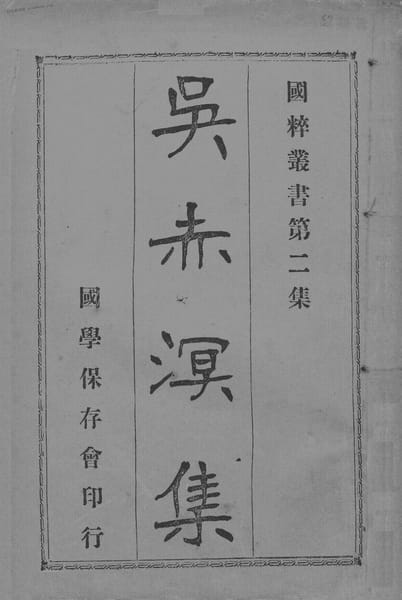 國粹叢書第二集
吳赤溟集
國學保存會印行